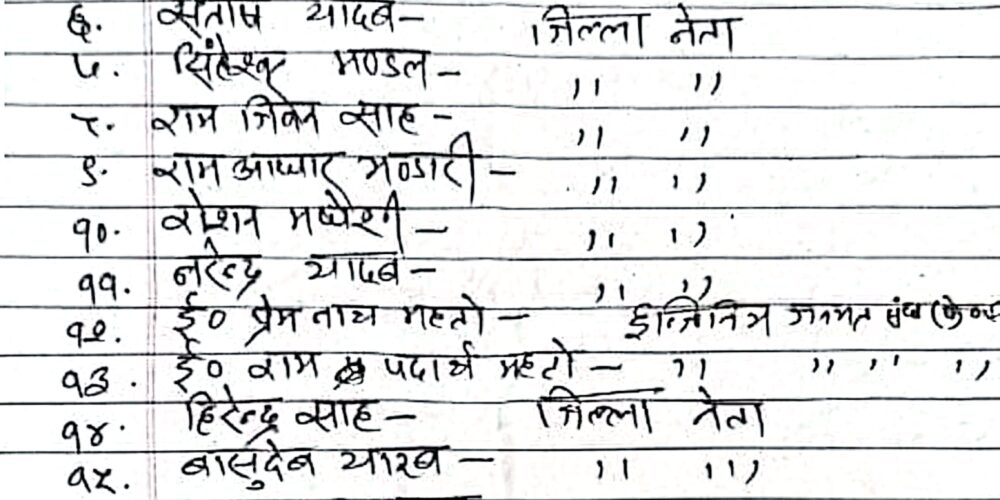 ६. सताष यादव - जिल्ला नेता
७. सिंहेश्वर मण्डल - ,, ,,
८. राम जिवन साह - ,, ,,
९. राम आधार भण्डारी - ,, ,,
१०. रोशन मधेशी - ,, ,,
११. नरेन्द्र यादव - ,, ,,
१२. ई० प्रेम नाथ महतो - इन्जिनियर जनमत संघ (केन्द्र
१३. ई० राम पदार्थ महतो - ,, ,, ,, ,,
१४. हिरेन्द्र साह - जिल्ला नेता
१५. बासुदेब यादव - ,, ,,